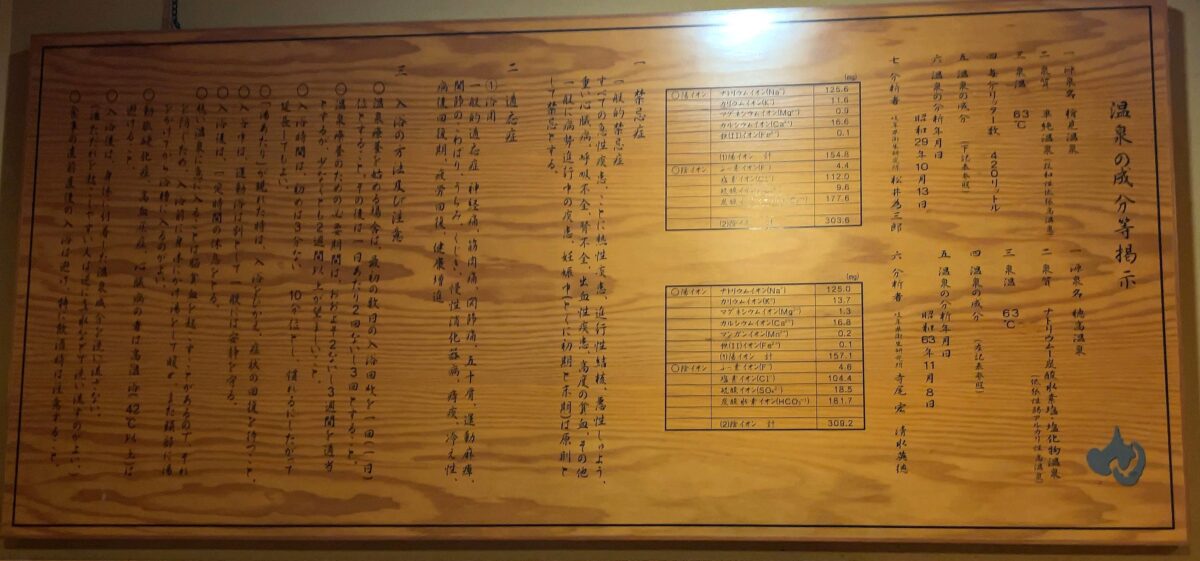 温泉の成分等掲示
一 源泉名 栃尾温泉
二 泉質 単純温泉(緩和性低張高温泉)
三 泉温 63℃
四 毎分リッター数 420リットル
五 温泉の成分 (下記表参照)
六 温泉の分析年月日
昭和29年10月13日
七 分析者 岐阜県衛生研究所 松井為三郎
一 源泉名 穂高温泉
二 泉質 ナトリウムー炭酸水素塩・塩化物温泉
(低張性弱アルカリ性高温泉)
三 泉温 63℃
四 温泉の成分 (左記表参照)
五 温泉の分析年月日
昭和63年11月8日
六 分析者 岐阜県衛生研究所 寺尾宏 清水英徳
(mg)
○陽イオン ナトリウムイオン(Na⁺) 125.6
カリウムイオン(K⁺) 11.6
マグネシウムイオン(Mg²⁺) 0.9
カルシウムイオン(Ca²⁺) 16.6
鉄(II)イオン(Fe²⁺) 0.1
(1)陽イオン 計 154.8
○陰イオン ふっ素イオン(F⁻) 4.4
塩素イオン(Cl⁻) 112.0
硫酸イオン 9.6
炭酸 177.6
(2)陰イオン 計 303.6
(mg)
○陽イオン ナトリウムイオン(Na⁺) 125.0
カリウムイオン(K⁺) 13.7
マグネシウムイオン(Mg²⁺) 1.3
カルシウムイオン(Ca²⁺) 16.8
マンガンイオン(Mn²⁺) 0.2
鉄(II)イオン(Fe²⁺) 0.1
(1)陽イオン 計 157.1
○陰イオン ふっ素イオン(F⁻) 4.6
塩素イオン(Cl⁻) 104.4
硫酸イオン(SO₄²⁻) 18.5
炭酸水素イオン(HCO₃⁻) 181.7
(2)陰イオン 計 309.2
一 禁忌症
一般的禁忌症
すべての急性疾患、ことに熱性疾患、進行性結核、悪性しゅよう、
重い心臓病、呼吸不全、腎不全、出血性疾患、高度の貧血、その他
一般に病勢進行中の疾患、妊娠中(とくに初期と末期)は原則と
して禁忌とする。
二 適応症
①浴用
一般的適応症 神経痛、筋肉痛、関節痛、五十肩、運動麻痺、
関節のこわばり、うちみ、くじき、慢性消化器病、痔疾、冷え性、
病後回復期、疲労回復、健康増進
三 入浴の方法及び注意
○温泉療養を始める場合は、最初の数日の入浴回数を一回(一日)
位とすること。その後は一日あたり2回ないし3回とすること。
○温泉療養のための必要期間は、おおよそ2ないし3週間を適当
とするが、少なくとも2週間以上が望ましいこと。
○入浴時間は、初めは3分ない 10分位とし、慣れるにしたがって
延長してもよい。
○「湯あたり」が現れた時は、入浴をひかえ、症状の回復を待つこと。
○入浴中は、運動浴は別として一般には安静を守る。
○入浴後は、一定時間の休息をとる。
○熱い温泉に急に入ることは脳貧血を起こすことがあるので、それ
を防ぐため、入浴前に身体にかけ湯をして暖め、また頭部に湯
をかけてから浴槽に入るのがよい。
○動脈硬化症、高血圧症、心臓病の者は高温浴(42℃以上)は
避けること。
○入浴後は、身体に付着した温泉成分を洗い流さない。
(湯ただれを起こしやすい人は逆に真水などで洗い流すのがよい。)
○食事の直前直後の入浴は避け、特に飲酒時は注意すること。